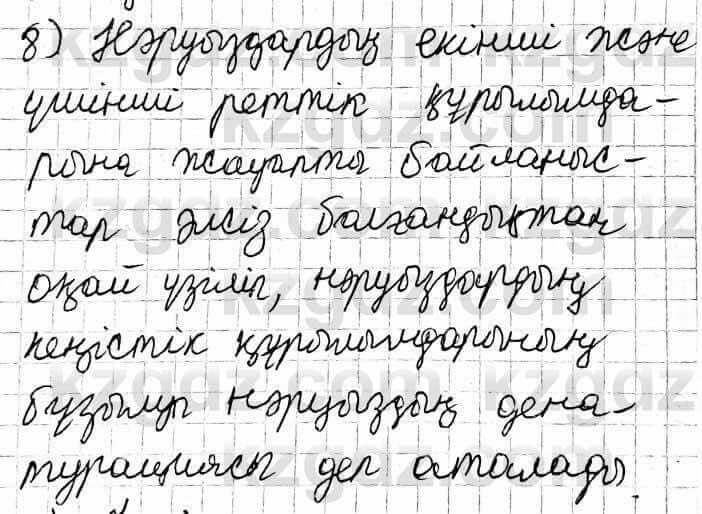 8) Нәруыздардың екінші және
үшінші реттік құрылымда-
рына жауапты байланыс-
тар әлсіз болғандықтан
оңай үзіліп, нәруыздардың
кеңістік құрылымдарының
бұзылуы нәруыздың дена-
турациясы деп аталады.